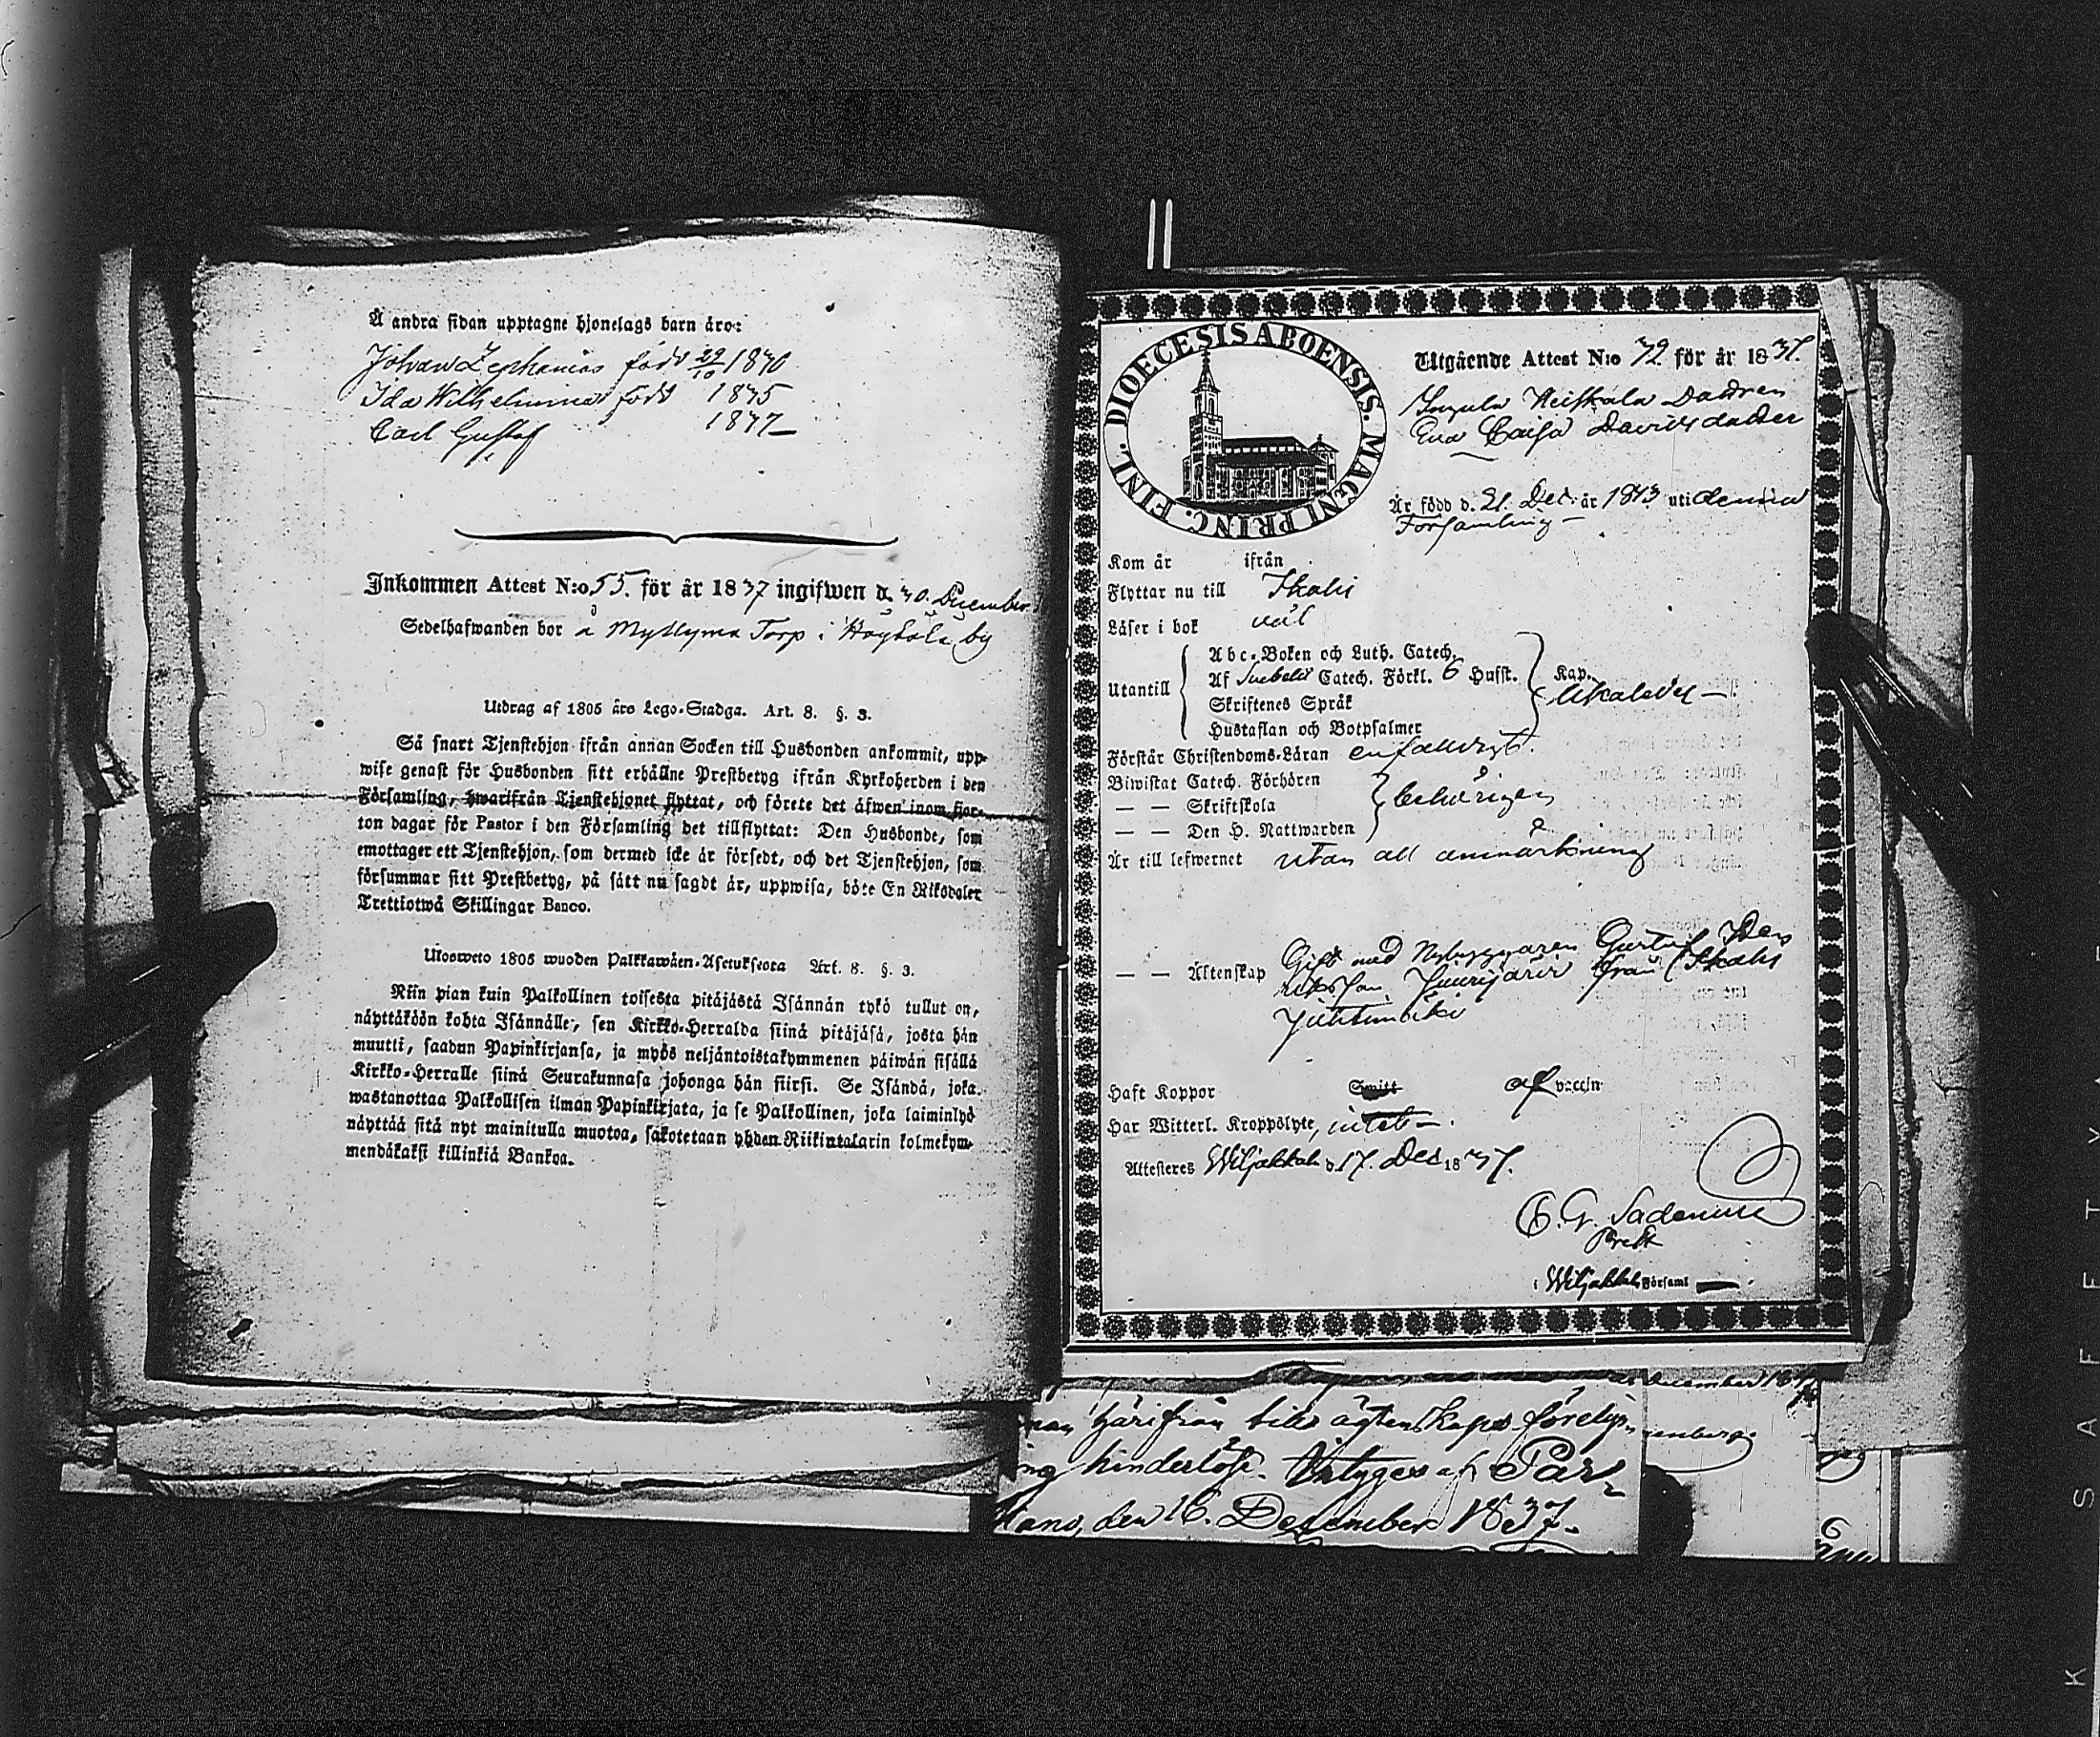 Å andra sidan upptagne hjonelags barn äro:
Johan Zephanias född 29/10 1830
Ida Wilhelmina född 1835
Carl Gustaf 1837
Inkommen Attest N:o 55. för år 1837 ingifwen d. 30. December
Sedelhafwanden bor å Myllyma Torp i Högbola by
Utdrag af 1805 års Lego-Stadga. Art. 8. §. 3.
Så snart Tjenstehjon ifrån annan Socken till Husbonden ankommit, upp-
wise genast för Husbonden sitt erhållne Prestbetyg ifrån Kyrkoherden i den
Församling, hwarifrån Tjenstehjonet flyttat, och förete det äfwen inom fjor-
ton dagar för Pastor i den Församling det tillflyttat: Den Husbonde, som
emottager ett Tjenstehjon, som dermed icke är försedt, och det Tjenstehjon, som
försummar sitt Prestbetyg, på sätt nu sagdt är, uppwisa, böte En Riksdaler
Trettiotwå Skillingar Banco.
Ulosweto 1805 wuoden Palkkawäen-Asetuksesta Art. 8. §. 3.
Niin pian kuin Palkollinen toisesta pitäjästä Isännän tykö tullut on,
näyttäköön kohta Isännälle, sen Kirkko-Herralda siinä pitäjäsä, josta hän
muutti, saadun Papinkirjansa, ja myös neljäntoistakymmenen päiwän sisällä
Kirkko-Herralle siinä Seurakunnasa johonga hän siirsi. Se Isändä, joka
wastanottaa Palkollisen ilman Papinkirjata, ja se Palkollinen, joka laiminlyö
näyttää sitä nyt mainitulla muotoa, sakotetaan yhden Riikintalarin kolmekym-
mendäkaksi killinkiä Bankoa.
DIOECESIS ABOENSIS. MAGNI PRINC. FINL.
Utgående Attest N:o 72 för år 1837.
Dottren
Eva Caisa Davidsdotter
Är född d. 21. Dec. år 1813 uti denna
Församling
Kom år ifrån
Flyttar nu till Ikalis
Läser i bok väl
Utantill
Abc-Boken och Luth. Catech.
Af Svebelii Catech. Förkl. 6 Husst. Kap.
Skriftenes Språk
Hustaflan och Botpsalmer
Förstår Christendoms-Läran enfaldigt.
Biwistat Catech. Förhören
— — Skriftskola behörigen
— — Den H. Nattwarden
Är till lefwernet utan all anmärkning
— — Äktenskap Gift med Nybyggaren Gustaf
från Ikalis
Haft Koppor Smitt af vaccin
Har Witterl. Kroppslyte, intet —.
Attesteras Wiljakkala d. 17. Dec 1837.
Prest
i Wiljakkala Församl
härifrån till ägtenskaps förelys-
ng hinderlös. Intygas af Par-
kano, den 16. December 1837.
SAFETY
K